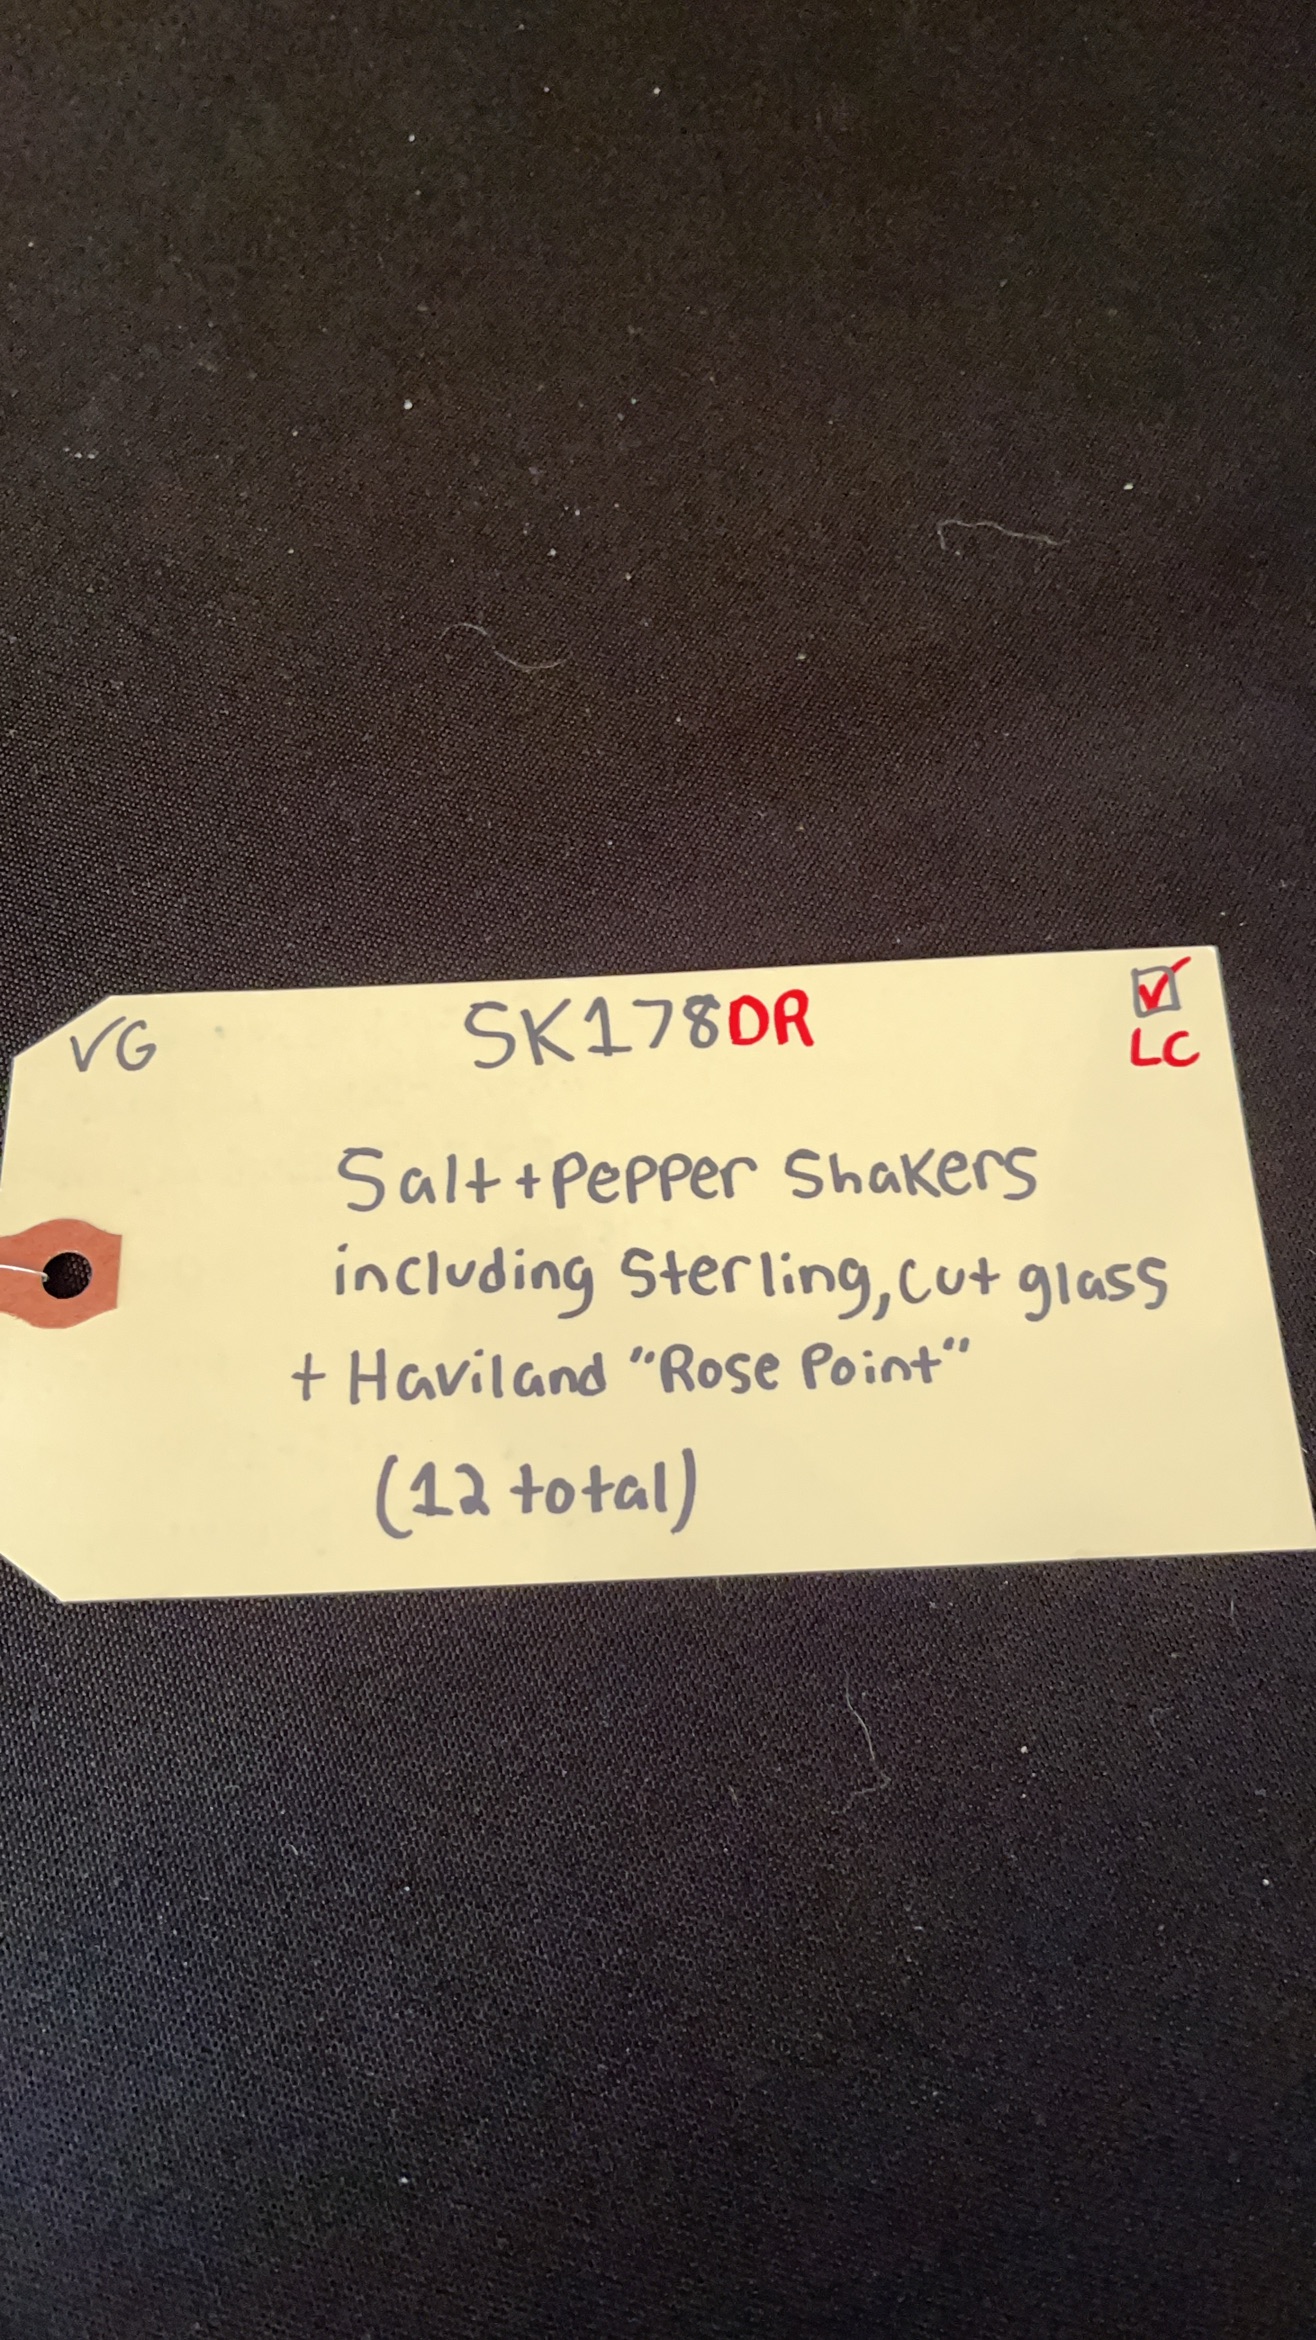 VG SK178DR ☑
LC
Salt + Pepper Shakers
including Sterling, cut glass
+ Haviland "Rose Point"
(12 total)